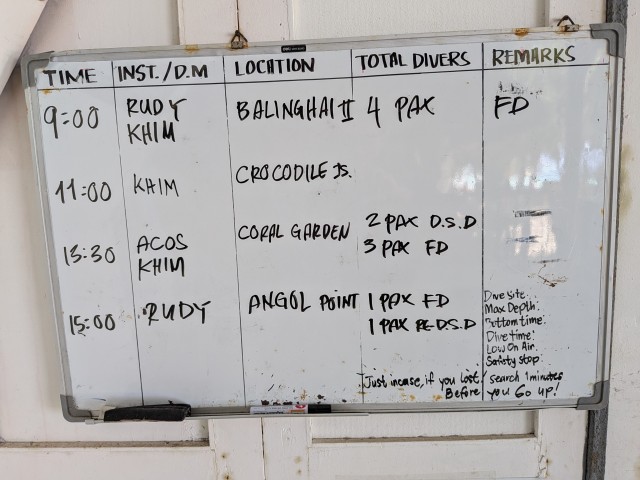 TIME INST./D.M LOCATION TOTAL DIVERS REMARKS
9:00 RUDY KHIM BALINGHAI II 4 PAX FD
11:00 KHIM CROCODILE IS.
13:30 ACOS KHIM CORAL GARDEN 2 PAX D.S.D
3 PAX FD
15:00 RUDY ANGOL POINT 1 PAX FD
1 PAX RE-D.S.D
Dive site:
Max Depth:
Bottom time:
Dive time:
Low On Air:
Safety stop:
Just incase, if you lost! search 1 minutes
Before you Go up!